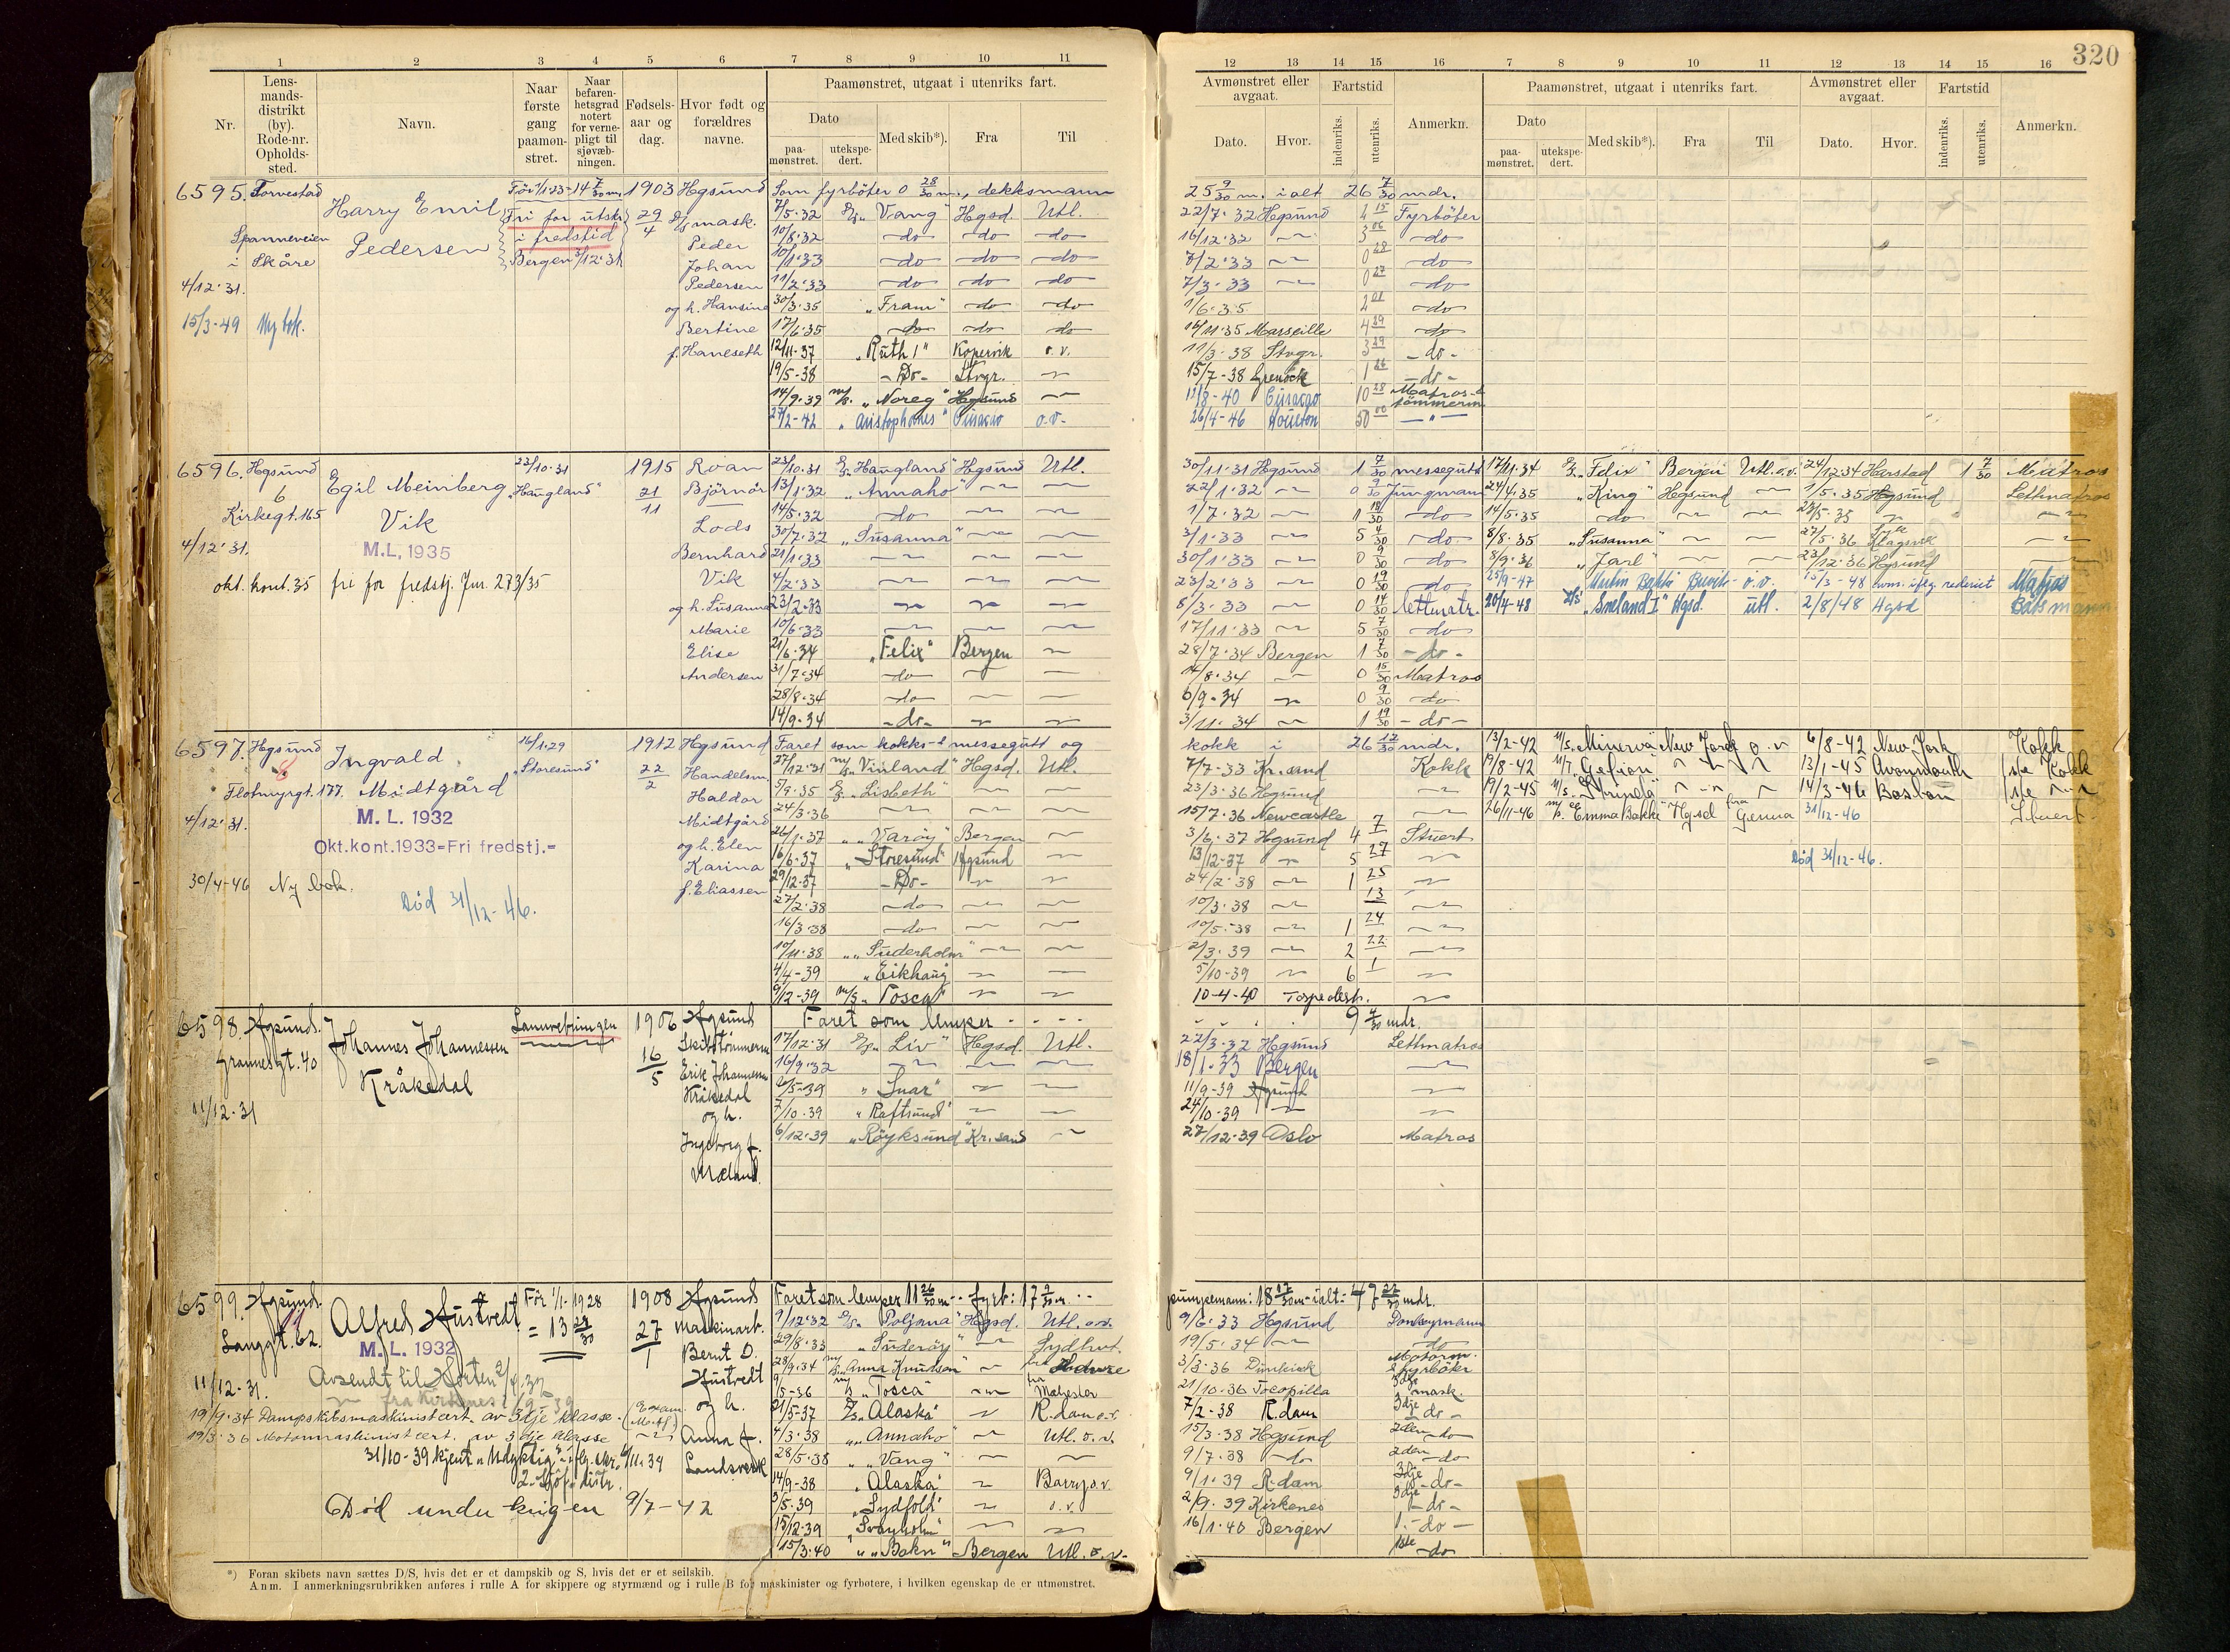 320
1 2 3 4 5 6 7 8 9 10 11
12 13 14 15 16 7 8 9 10 11 12 13 14 15 16
Nr.
Lens-
mands-
distrikt
(by).
Rode-nr.
Opholds-
sted.
Navn.
Naar
første
gang
paamøn-
stret.
Naar
befaren-
hetsgrad
notert
for verne-
pligt til
sjøvæb-
ningen.
Fødsels-
aar og
dag.
Hvor født og
forældres
navne.
Paamønstret, utgaat i utenriks fart.
Dato
paa-
mønstret.
utekspe-
dert.
Med skib*).
Fra
Til
Avmønstret eller
avgaat.
Dato.
Hvor.
Fartstid
indenriks.
utenriks.
Anmerkn.
Paamønstret, utgaat i utenriks fart.
Dato
paa-
mønstret.
utekspe-
dert.
Med skib*).
Fra
Til
Avmønstret eller
avgaat.
Dato.
Hvor.
Fartstid
indenriks.
utenriks.
Anmerkn.
6595. Torvestad
Spanneveien
i Skåre
4/12-31.
15/3-49 Ny bok.
Harry Emil
Pedersen
Fri for utskr.
i fredstid
Bergen 3/12-31
1903
29/4
Hgsund
mask.
Peder
Johan
Pedersen
og h. Hansine
Bertine
f. Haneseth
Som fyrböter 0 28/30 m., dekksmann 25 9/30 m. ialt 26 7/30 mdr.
7/5-32 "Vang" Hgsd. Utl. 22/7-32 Hgsund 2 15 Fyrböter
10/8-32 do do do 16/12-32 3 06 do
10/1-33 do do do 7/2-33 0 28 do
11/2-33 do do do 7/3-33 0 27 do
30/3-35 "Fram" do do 1/6-35 2 01 do
17/6-35 do do do 14/11-35 Marseille 4 29 do
12/11-37 "Ruth I" Kopervik o.v. 11/3-38 Stvgr. 3 29 do
19/5-38 Do Stvgr. 15/7-38 Grenock 1 26 do
14/9-39 m/s. "Noreg" Hgsund 11/8-40 Curacao 10 28 Matros-&
tömmerm.
27/2-42 "Aristophanes" Curacao o.v. 26/4-46 Houston 50 00
6596. Hgsund
6
Kirkegt. 165
4/12-31.
okt. kont. 35 fri for fredstj. Jnr. 273/35
Egil Meinberg
Vik
M.L. 1935
23/10-31
"Haugland"
1915
21/11
Roan
Björnör
Lods
Bernhard
Vik
og h. Susanna
Marie
Elise
Andersen
23/10-31 "Haugland" Hgsund Utl. 30/11-31 Hgsund 1 7/30 messegutt
13/1-32 "Annaho" 22/1-32 0 9/30 Jungmann
14/5-32 do 1/7-32 1 18/30 do
30/7-32 "Susanna" 3/1-33 5 4/30 do
21/1-33 30/1-33 0 9/30 do
4/2-33 23/2-33 0 19/30 do
23/2-33 8/3-33 0 14/30 lettmatr.
10/6-33 17/11-33 5 7/30 do
21/6-34 "Felix" Bergen 28/7-34 Bergen 1 7/30 do
31/7-34 do 14/8-34 0 15/30 Matros
28/8-34 do 6/9-34 0 9/30 do
14/9-34 do 3/11-34 1 19/30 do
17/11-34 "Felix" Bergen Utl. o.v. 24/12-34 Harstad 1 7/30 Matros
24/4-35 "King" Hgsund 1/5-35 Hgsund Lettmatros
14/5-35 do 23/5-35
8/8-35 "Susanna" 27/5-36
8/9-36 "Jarl" 23/12-36 Hgsund
25/9-47 Martin Bakke o.v. 15/3-48 iflg. rederiet Matros
20/4-48 "Sneland I" Hgsd. utl. 2/8/48 Hgsd Båtsmann
6597. Hgsund
8
Flotmyrgt. 177.
4/12-31.
30/4-46 Ny bok.
Ingvald
Midtgård
M. L. 1932
Okt.kont.1933=Fri fredstj.=
Död 31/12-46.
16/1-29
"Storesund"
1912
22/2
Hgsund
Handelsm.
Haldor
Midtgård
og h. Elen
Karina
f. Eliassen
Faret som kokks- & messegutt og kokk i 26 12/30 mdr.
27/12-31 m/s. "Vinland" Hgsd. Utl. 7/7-33 Kr.sand Kokk
5/9-35 "Lisbeth" 23/3-36 Hgsund
24/3-36 15/7-36 Newcastle
26/1-37 "Varöy" Bergen 3/6-37 Hgsund 4 7 Stuert
16/6-37 "Storesund" Hgsund 13/12-37 5 27
29/12-37 Do 24/2-38 1 25
27/2-38 do 10/3-38 13
16/3-38 do 10/5-38 1 24
10/11-38 "Suderholm" 2/3-39 2 22
4/4-39 "Eikhaug" 5/10-39 6 1
9/12-39 m/s "Tosca" 10-4-40 Torpedert.
13/2-42 M/S. "Minerva" New York o.v 6/8-42 New York Kokk
19/8-42 M/T. "Gefion" 13/1-45 Avonmouth 1ste Kokk
19/2-45 M/S. "Strinda" 14/3-46 Boston 1ste
26/11-46 "Emma Bakke" Hgsd Genua 31/12-46 Stuert
Död 31/12-46.
6598. Hgsund.
Grannesgt. 40
11/12-31
Johannes Johannessen
Kråkedal
Landvebningen
1906
16/5
Hgsund
Skibstömmerm.
Erik Johannessen
Kråkedal
og h.
Ingeborg f.
Mæland.
Faret som lemper 9 7/30 mdr.
17/12-31 "Liv" Hgsd. Utl. 22/3-32 Hgsund Lettmatros
16/9-32 18/1-33 Bergen
20/5-39 "Snar" 11/9-39 Hgsund
7/10-39 "Raftsund" 24/10-39
6/12-39 "Röyksund" Kr.sand 27/12-39 Oslo Matros
6599. Hgsund.
11
Langgt. 62.
11/12-31.
Alfred Hustvedt
M.L. 1932
Avsendt til Horten
fra Kirkenes
19/9-34 Dampskibsmaskinistcert. av 3dje klasse.
19/3-36 Motormaskinistcert. av 3dje klasse
31/10-39 kjent "Udyktig"
Död under krigen 9/7-42
Før 1/1-1928
= 13 28/30
1908
27/1
Hgsund
Maskinarb.
Bernt D.
Hustvedt
og h.
Anna f.
Landsverk
Faret som lemper 11 26/30 m fyrb: 17 9/30 m.
pumpemann: 18 17/30 m - ialt: 47 22/30 mdr.
9/12-32 "Poljana" Hgsd. Utl. o.v. 9/6-33 Hgsund Donkeymann
29/8-33 "Suderöy" Sydhvt. 19/5-34 do
28/9-34 "Anna Knudsen" 3/3-36 Dunkirk Motorm.
& fyrböter
9/5-36 "Tosca" 21/10-36 Tocopilla 3dje mask.
21/5-37 "Alaska" R.dam o.v. 7/2-38 R.dam 3dje do
4/3-38 "Annaho" Utl. o.v. 15/3-38 Hgsund 2den do
28/5-38 "Vang" 9/7-38 do 2den do
14/9-38 "Alaska" Barry o.v. 9/1-39 R.dam 3dje do
3/5-39 "Sydfold" o.v. 2/9-39 Kirkenes 3dje do
15/12-39 16/1-40 Bergen 1.-do
15/3-40 "Bokn" Bergen Utl. o.v. 1ste do
*) Foran skibets navn sættes D/S, hvis det er et dampskib og S, hvis det er et seilskib.
Anm. I anmerkningsrubrikken anføres i rulle A for skippere og styrmænd og i rulle B for maskinister og fyrbøtere, i hvilken egenskap de er utmønstret.